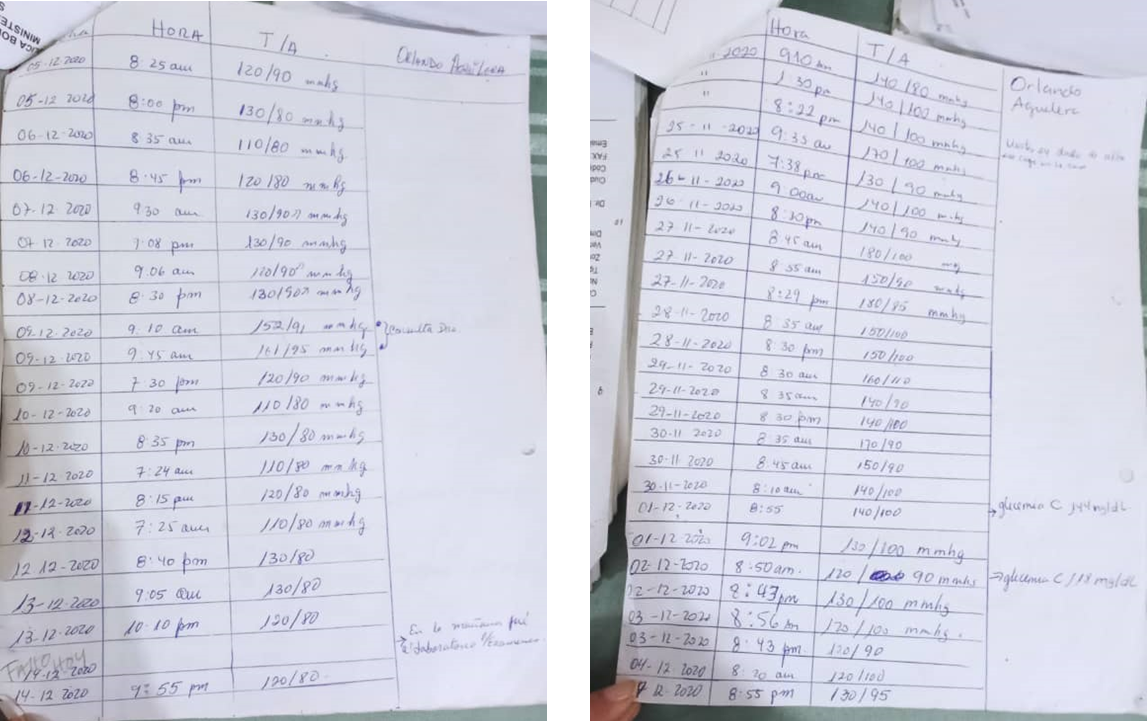 HORA T/A
ORLANDO AGUILERA
05-12 2020 8:25 am 120/90 mmhg
05-12 2020 8:00 pm 130/80 mmhg
06-12-2020 8 35 am 110/80 mmhg
06-12-2020 8:45 pm 120/80 mmhg
07-12-2020 9 30 am 130/90 mmhg
07 12-2020 7:08 pm 130/90 mmhg
08-12 2020 9:06 am 110/90 mmhg
08-12-2020 8:30 pm 130/90 mmhg
09-12-2020 9:10 am 152/91 mmhg
Consulta
09-12-2020 9:45 am 161/95 mmhg
09-12-2020 7:30 pm 120/90 mmhg
10-12-2020 9:20 am 110/80 mmhg
10-12-2020 8:35 pm 130/80 mmhg
11-12 2020 7:24 am 110/80 mmhg
11-12-2020 8:15 pm 120/80 mmhg
12-12-2020 7:25 am 110/80 mmhg
12 12-2020 8:40 pm 130/80
13-12-2020 9:05 am 130/80
13-12-2020 10:10 pm 120/80
En la mañana fué
a laboratorio
14-12 2020
14-12 2020 9:55 pm 120/80
Hora T/A
Orlando
Aguilera
2020 910 am 140/80 mmhg
" 1:30 pm 140/100 mmhg
" 8:22 pm 140/100 mmhg
25-11-2020 9:35 am 170/100 mmhg
25 11 2020 7:38 pm 130/90 mmhg
26-11-2020 9:00 am 140/100 mmhg
26-11-2020 8:30 pm 140/90 mmhg
27 11-2020 8:45 am 180/100
27 11-2020 8 55 am 150/90 mmhg
27-11-2020 8:29 pm 180/85 mmhg
28-11-2020 8:35 am 150/100
28-11-2020 8:30 pm 150/100
29-11-2020 8 30 am 160/110
29-11-2020 8 35am 140/90
29-11-2020 8 30 pm 140/100
30-11 2020 8:35 am 170/90
30-11 2020 8:45am 150/90
30-11-2020 8:10am 140/100
01-12-2020 8:55 140/100
→ glicemia C 144mg/dL
01-12-2020 9:02 pm 130/100 mmhg
02-12-2020 8:50am. 120/ 90 mmhg
→ glicemia C 118 mg/dL
02-12-2020 8:43pm 130/100 mmhg
03-12-2020 8:56 am 120/100 mmhg.
03-12-2020 8:43 pm 120/90
04-12.2020 8:20 am 120/100
12.2020 8:55 pm 130/95